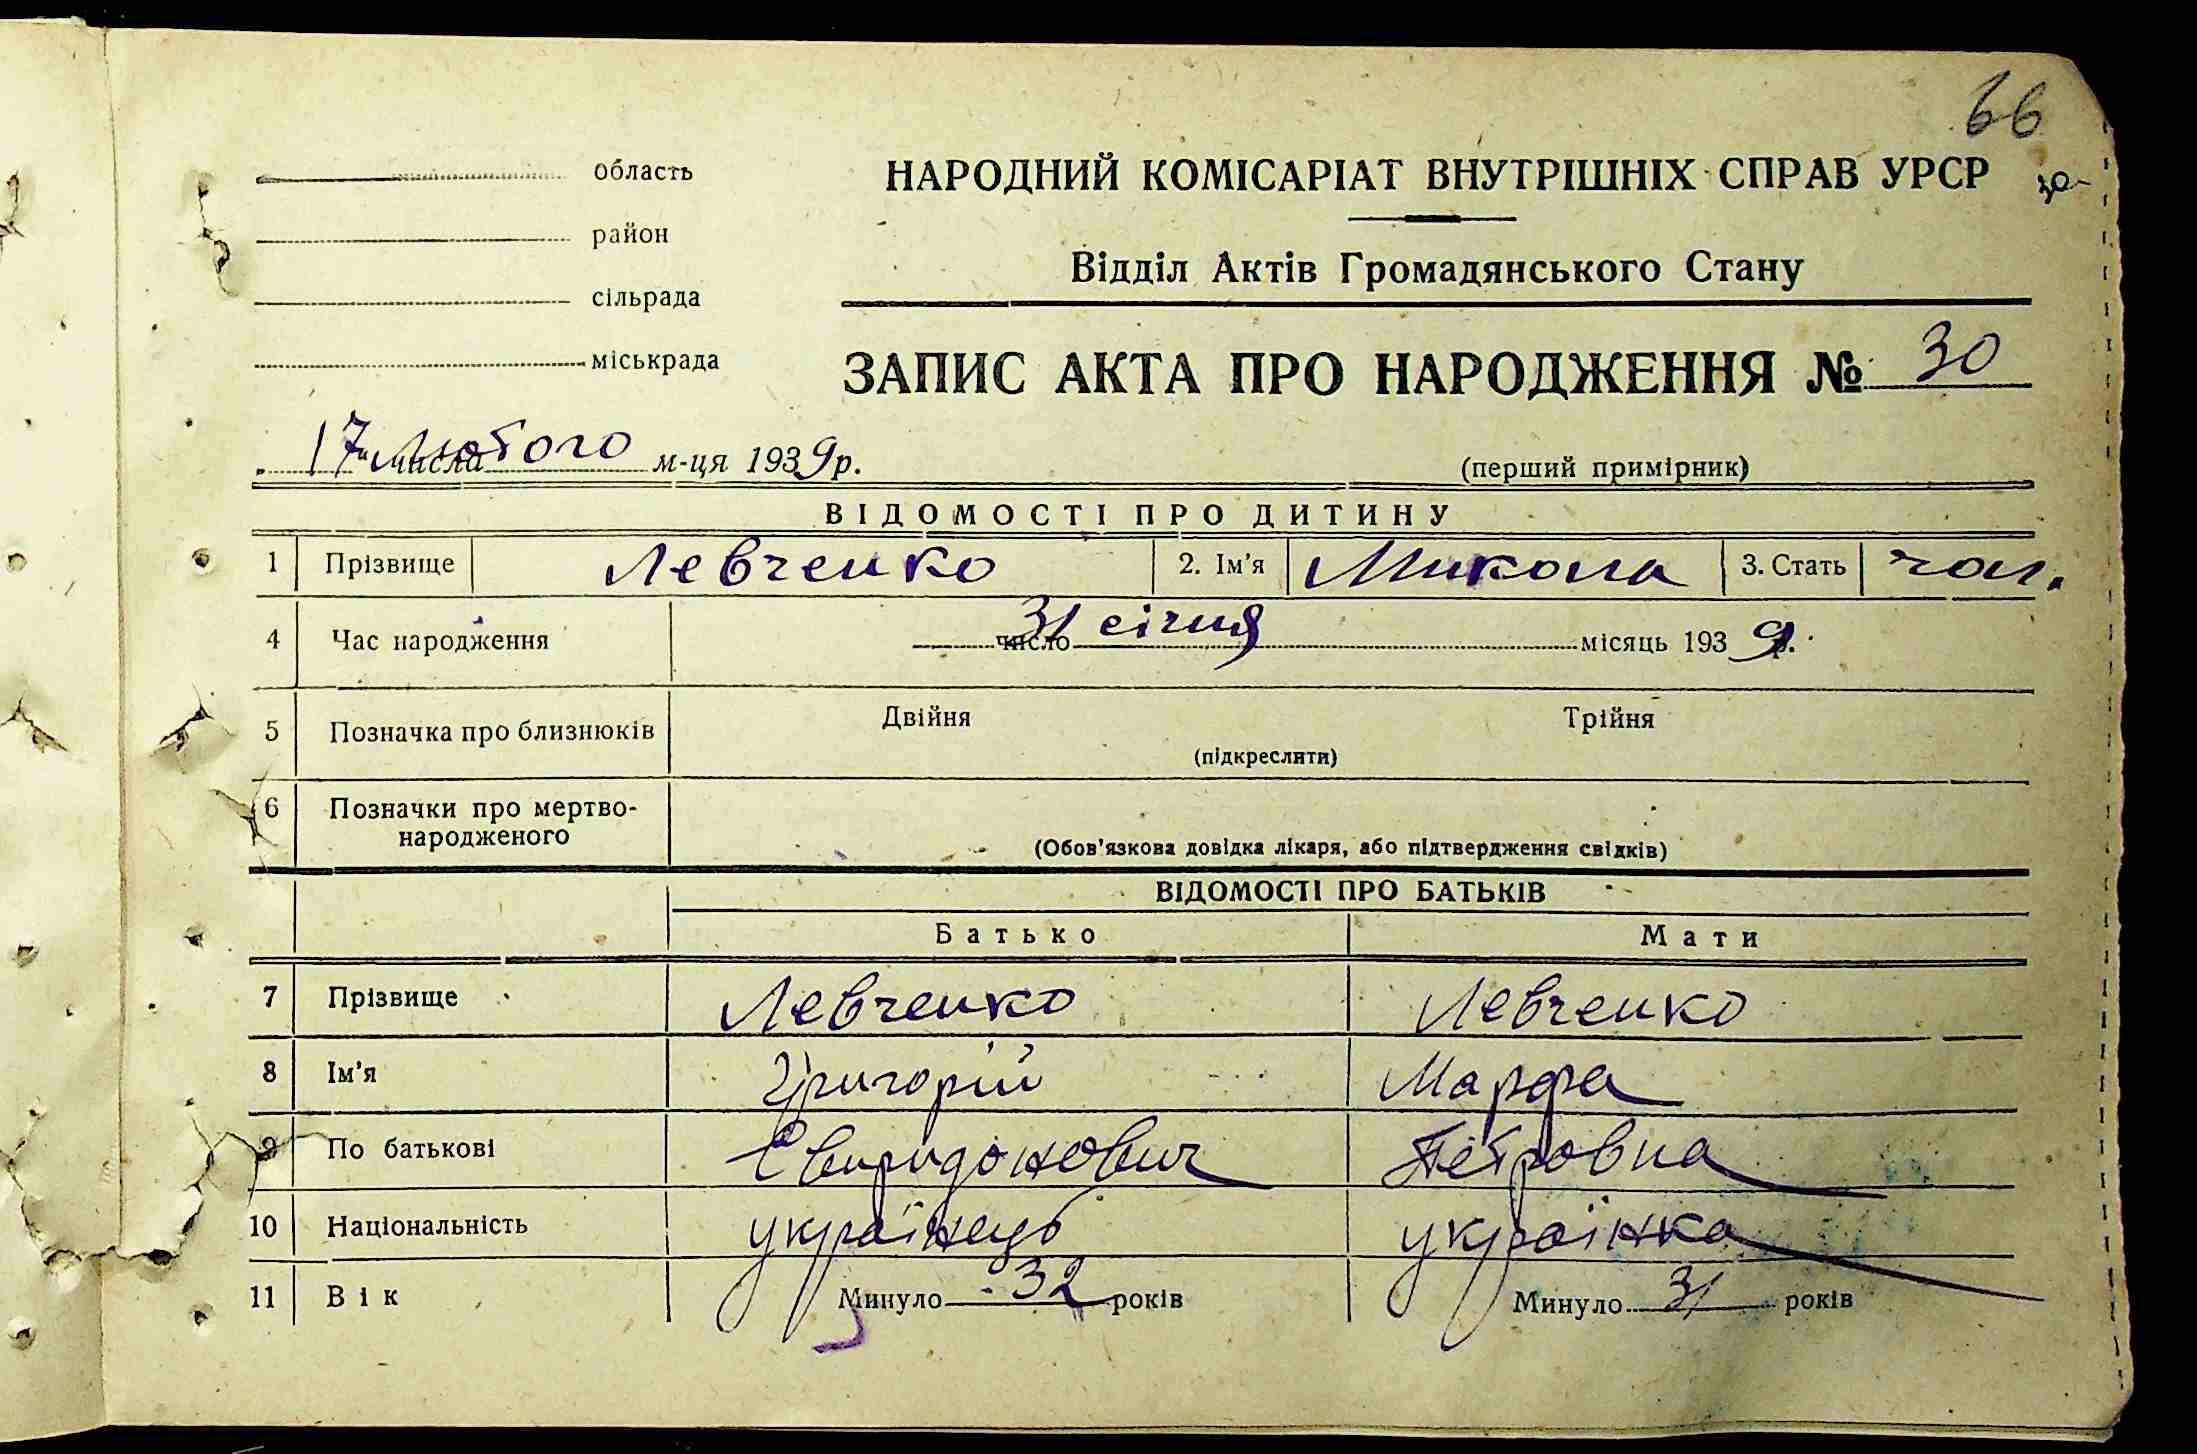 66
область
НАРОДНИЙ КОМІСАРІАТ ВНУТРІШНІХ СПРАВ УРСР
30
район
Відділ Актів Громадянського Стану
сільрада
міськрада
ЗАПИС АКТА ПРО НАРОДЖЕННЯ № 30
17 числа лютого м-ця 1939р.
(перший примірник)
ВІДОМОСТІ ПРО ДИТИНУ
1 Прізвище Левченко 2. Ім'я Микола 3. Стать чол.
4 Час народження 31 число січня місяць 1939р.
5 Позначка про близнюків Двійня Трійня
(підкреслити)
6 Позначки про мертво-
народженого
(Обов'язкова довідка лікаря, або підтвердження свідків)
ВІДОМОСТІ ПРО БАТЬКІВ
Батько Мати
7 Прізвище Левченко Левченко
8 Ім'я Григорій Марфа
9 По батькові Свиридонович Петровна
10 Національність українець українка
11 Вік Минуло 32 років Минуло 31 років